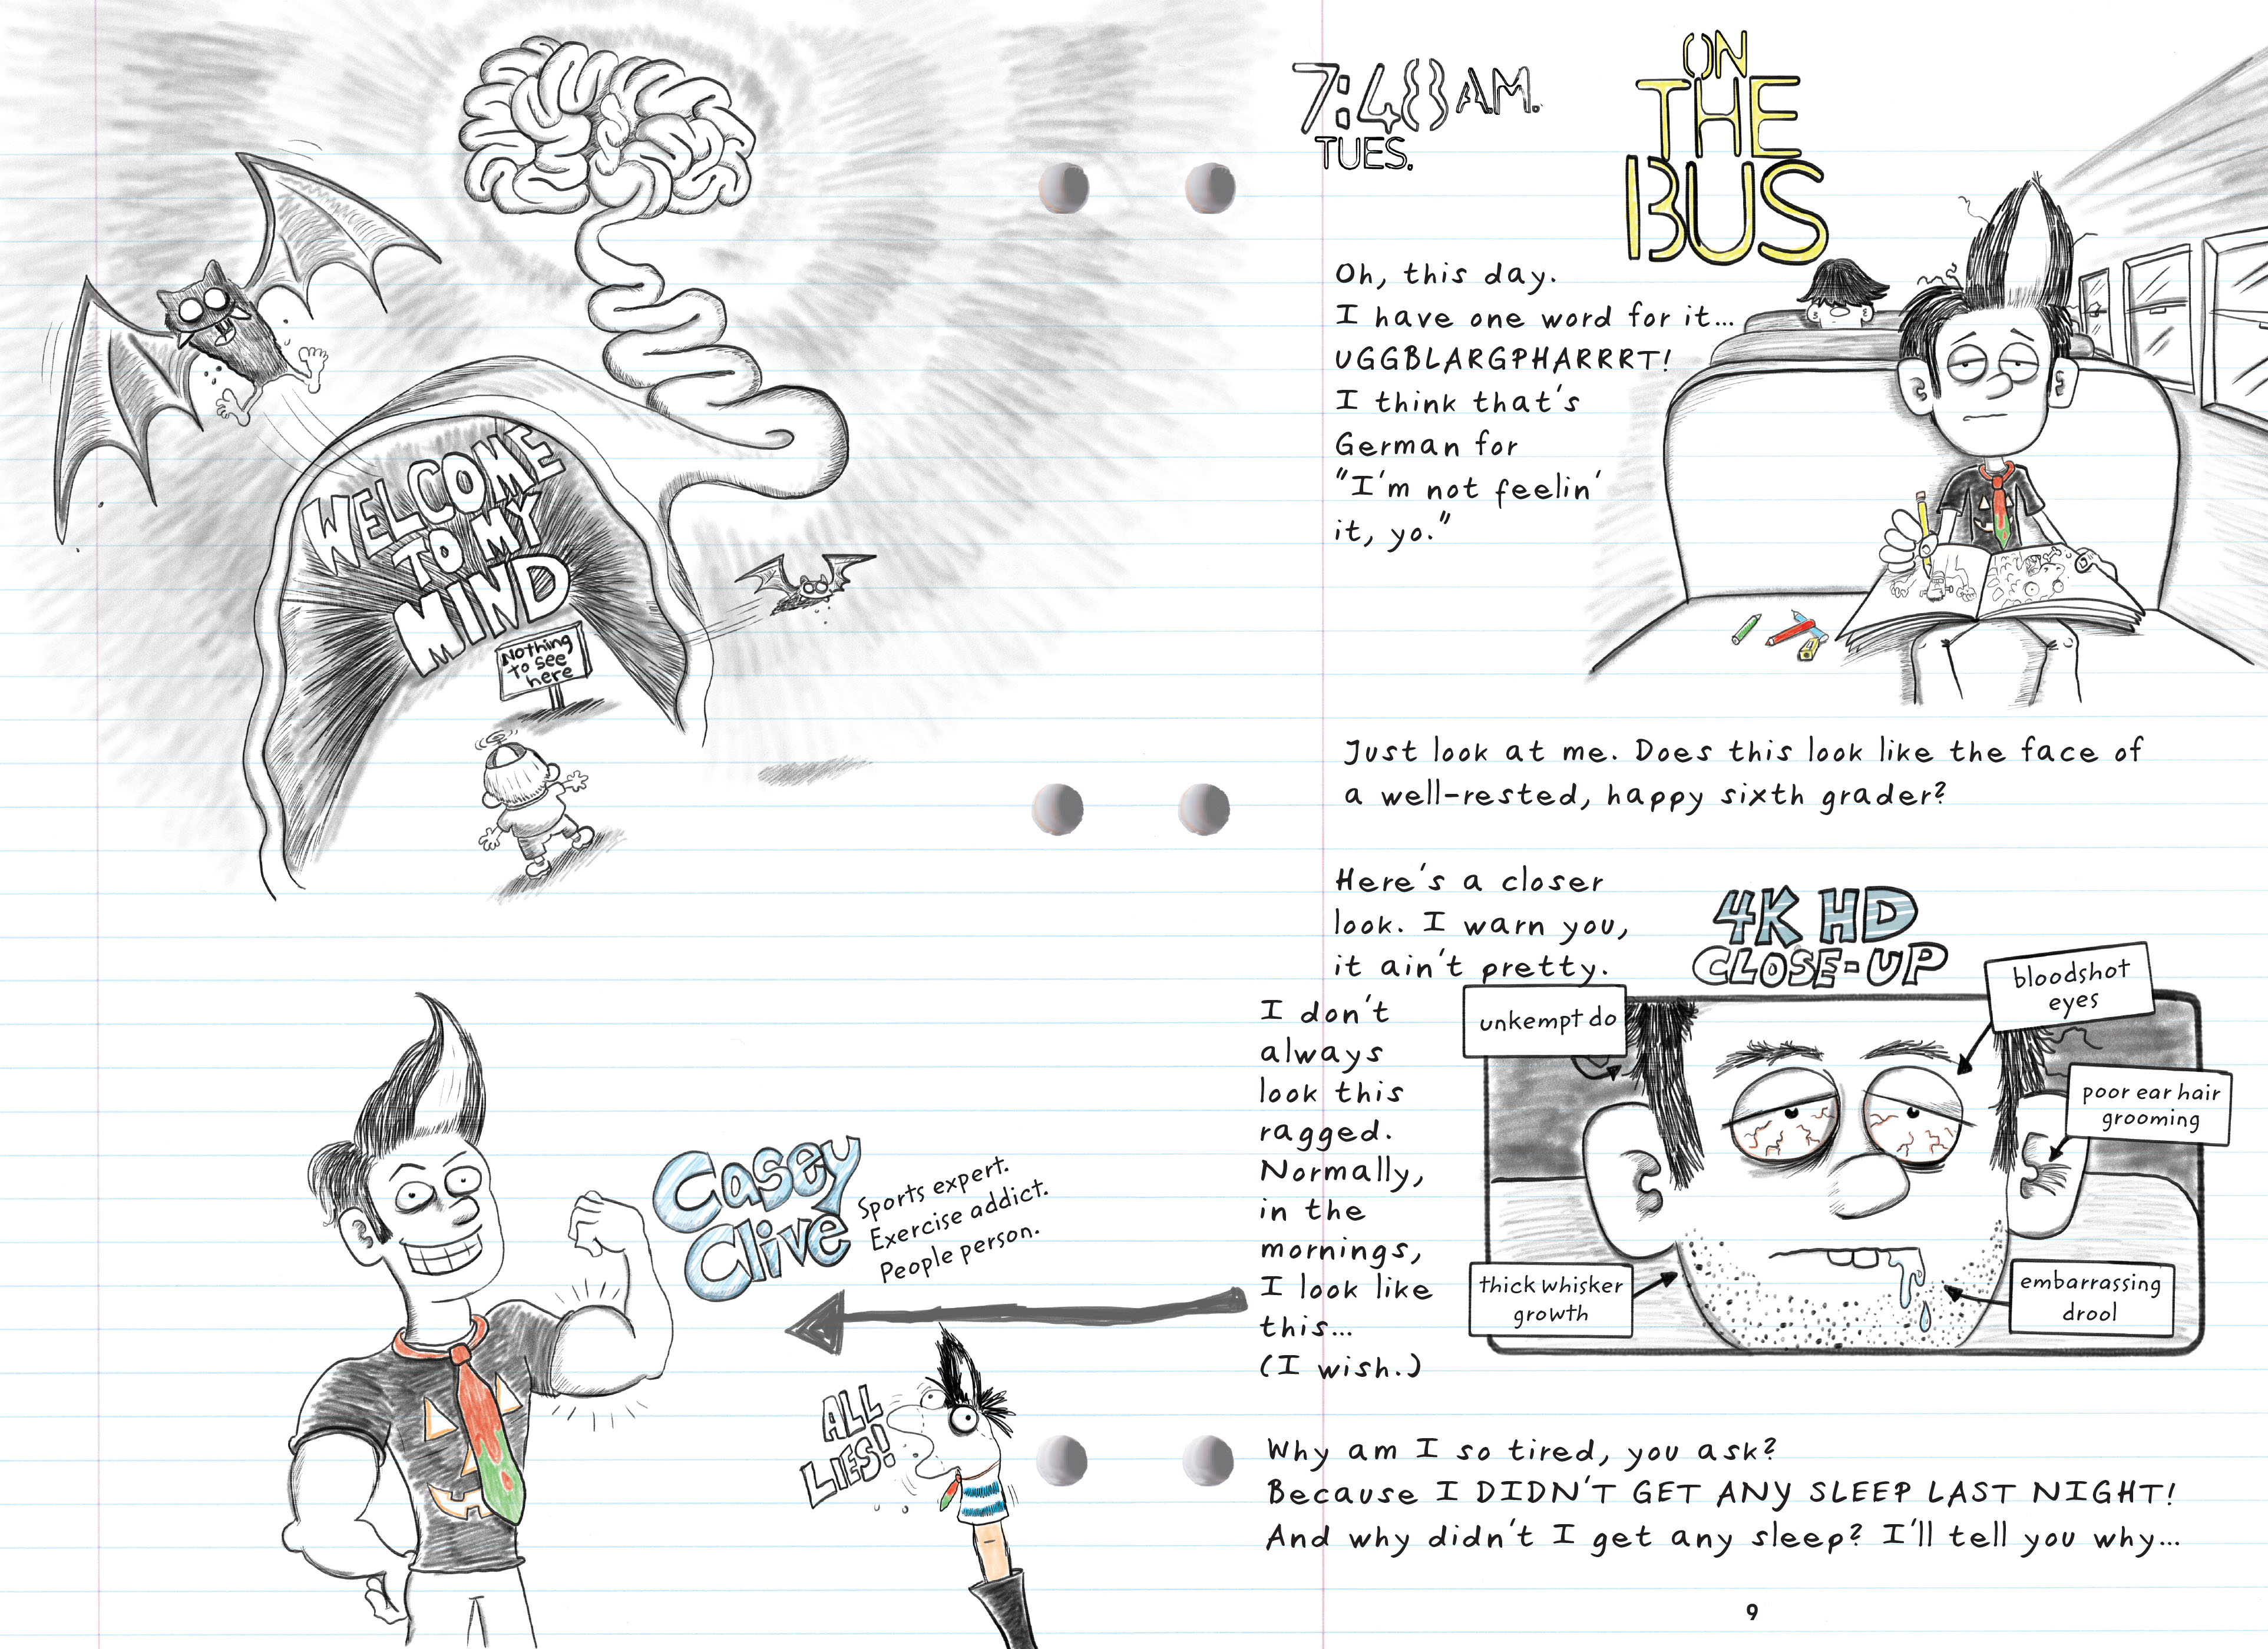 WELCOME
TO MY
MIND
Nothing
to see
here
Casey
Clive
Sports expert.
Exercise addict.
People person.
ALL
LIES!
7:48 A.M.
TUES.
ON
THE
BUS
Oh, this day.
I have one word for it...
UGGBLARGPHARRRT!
I think that's
German for
"I'm not feelin'
it, yo."
Just look at me. Does this look like the face of
a well-rested, happy sixth grader?
Here's a closer
look. I warn you,
it ain't pretty.
4K HD
CLOSE-UP
unkempt do
bloodshot
eyes
poor ear hair
grooming
thick whisker
growth
embarrassing
drool
I don't
always
look this
ragged.
Normally,
in the
mornings,
I look like
this...
(I wish.)
Why am I so tired, you ask?
Because I DIDN'T GET ANY SLEEP LAST NIGHT!
And why didn't I get any sleep? I'll tell you why...
9